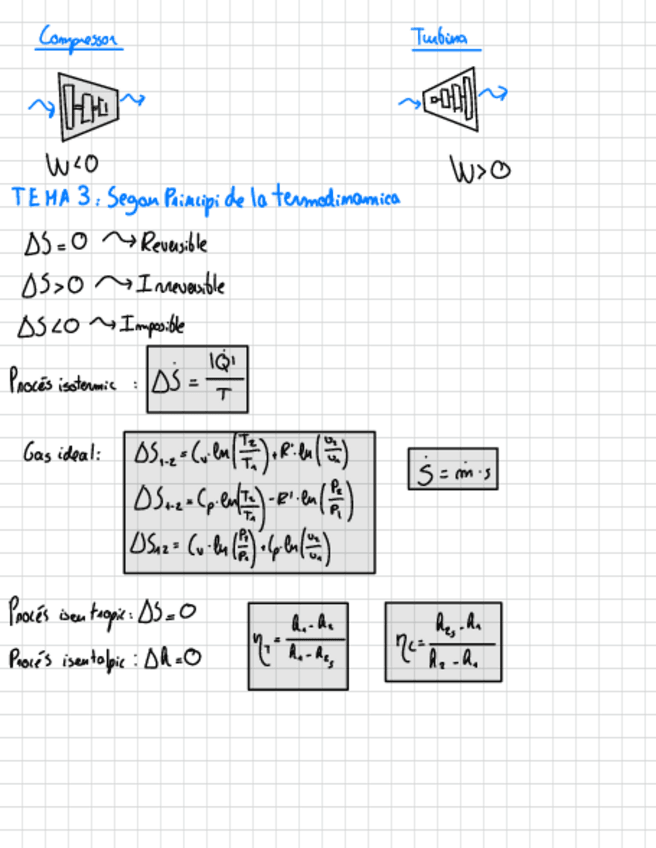 Compressor Turbina
W<0 W>0
TEMA 3: Segon Principi de la termodinamica
ΔS=0 ⤳ Reversible
ΔS>0 ⤳ Irreversible
ΔS<0 ⤳ Imposible
Procés isotermic : ΔṠ = |Q̇| / T
Gas ideal: ΔS₁₋₂ = Cv·ln(T₂/T₁) + R'·ln(v₂/v₁)
Ṡ = ṁ·s
ΔS₁₋₂ = Cp·ln(T₂/T₁) - R'·ln(P₂/P₁)
ΔS₁₂ = Cv·ln(P₂/P₁) + Cp·ln(v₂/v₁)
Procés isentropic: ΔS=0
Procés isentalpic: Δh=0
η_T = (h₁-h₂) / (h₁-h₂s)
η_C = (h₂s-h₁) / (h₂-h₁)